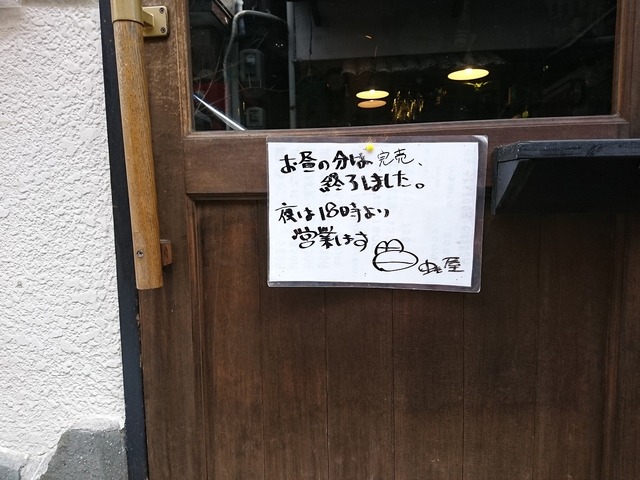 お昼の分は完売、
終了しました。
夜は18時より
営業します
屋